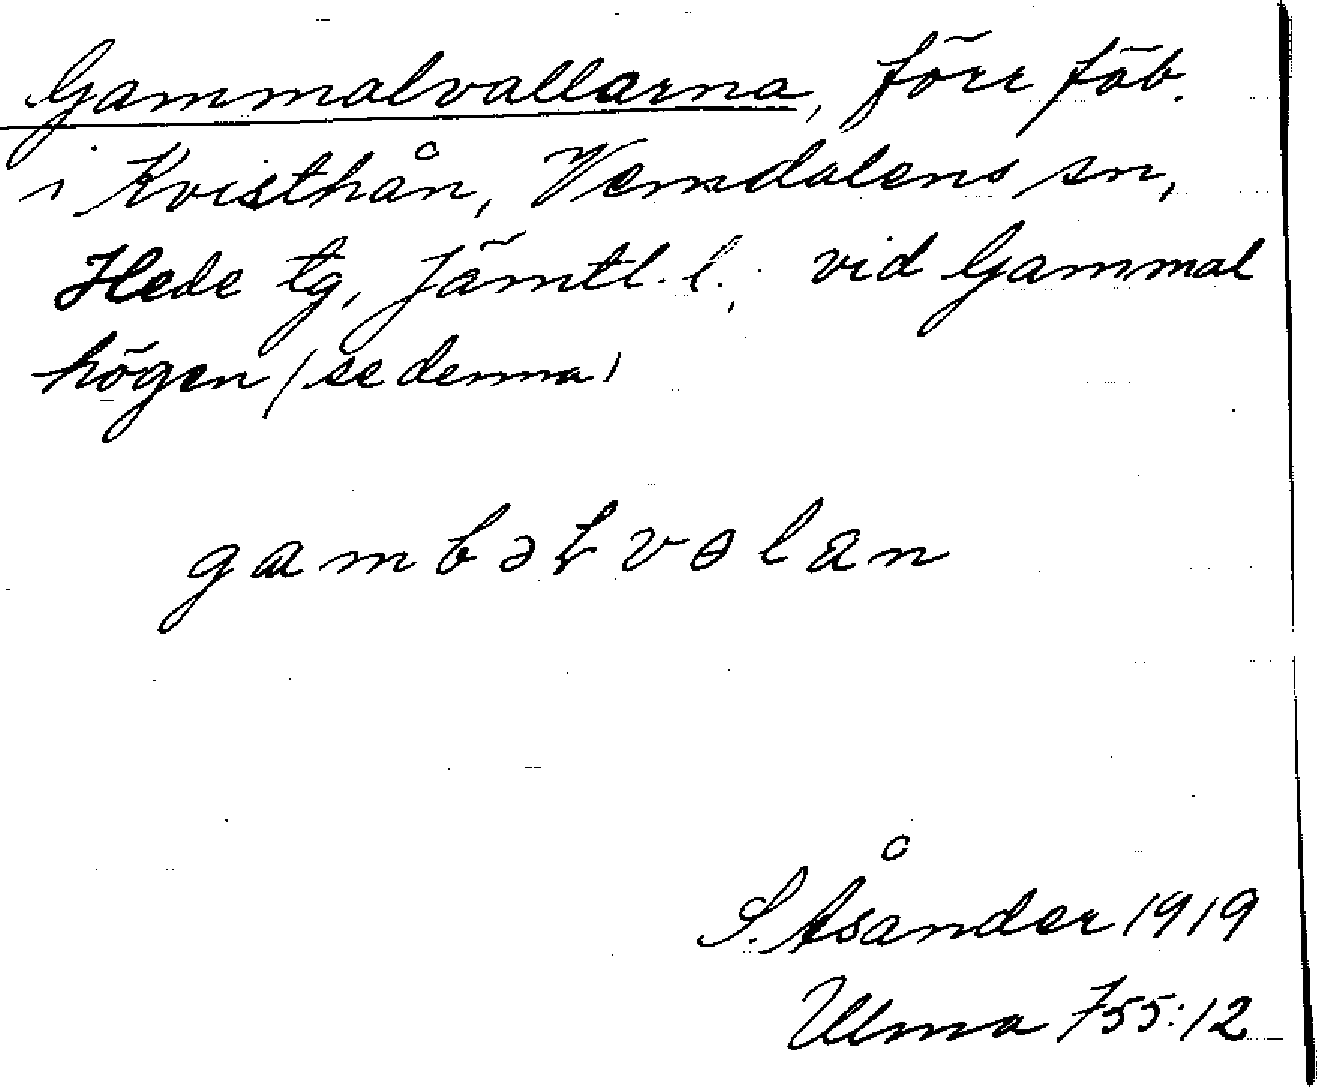 Gammalvallarna, förr fäb.
i Kvisthån, Vemdalens sn,
Hede tg, Jämtl. l., vid Gammal
högen (se denna)
gambəɫvɑlan
S. Åsander 1919
Ulma 755:12